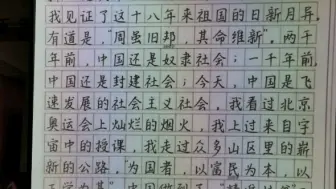 我见证了这十八年来祖国的日新月异。
有道是，“周虽旧邦，其命维新”。两千
年前，中国还是奴隶社会；一千年前，
中国还是封建社会；今天，中国是飞
速发展的社会主义社会。我看过北京
奥运会上灿烂的烟火，我上过来自宇
宙中的授课，我走过众多山区里的崭
新的公路。“为国者，以富民为本，以